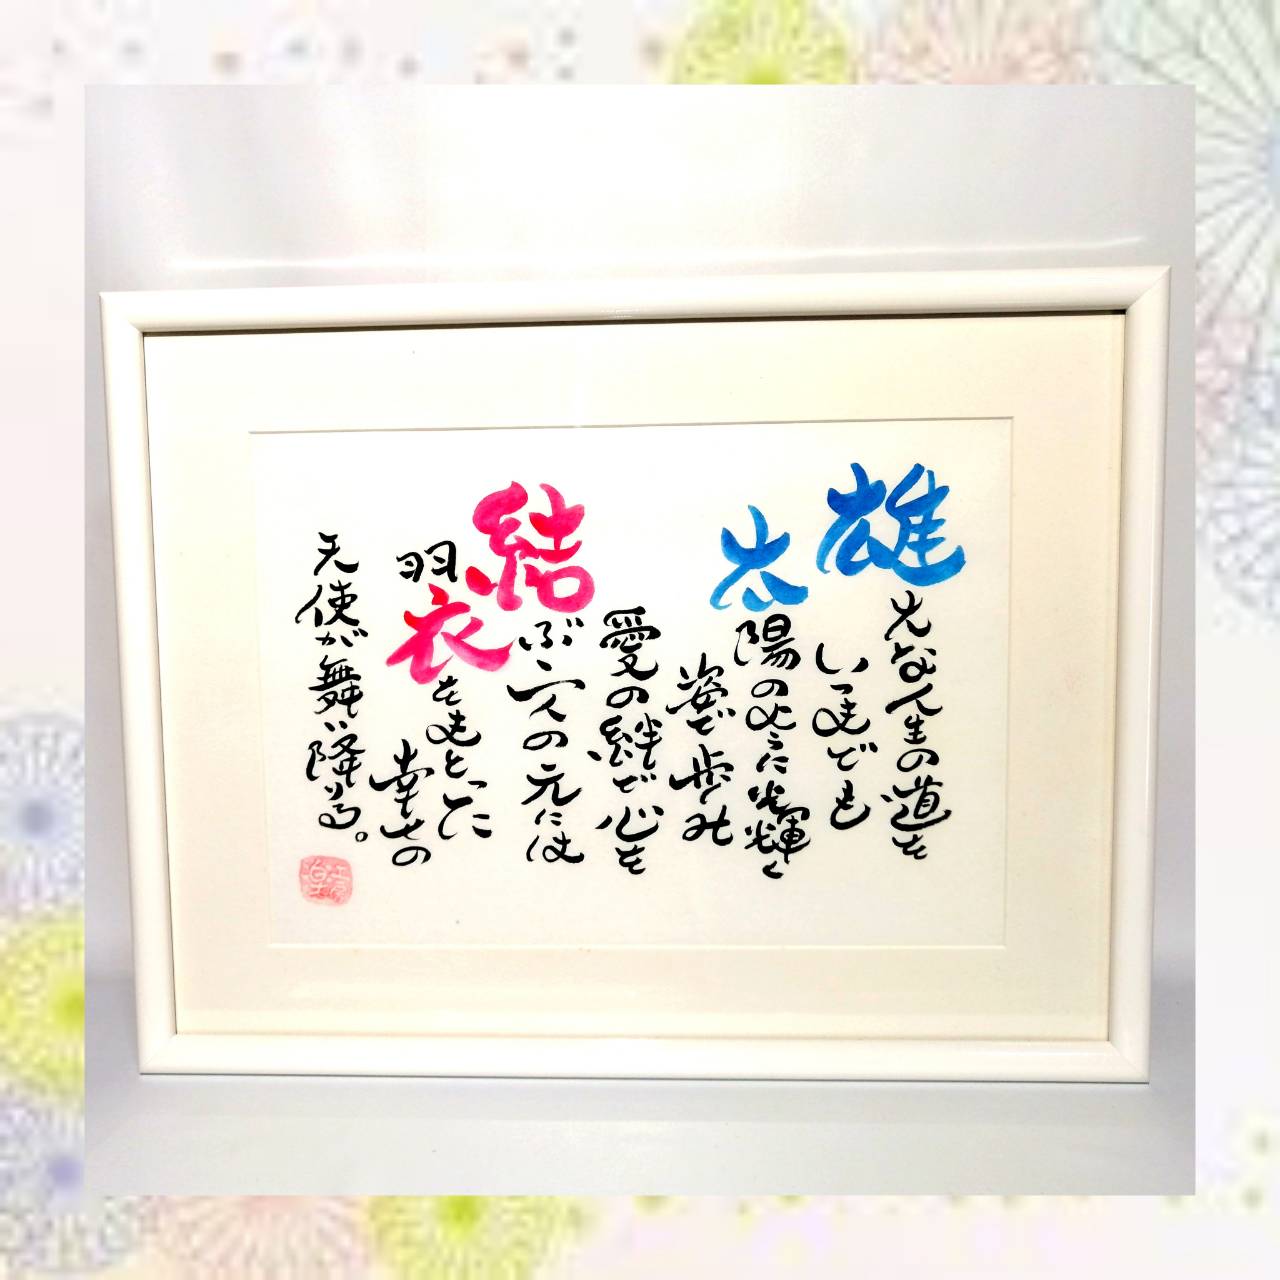 雄大な人生の道を
いつまでも
太陽のように光輝く
姿で歩み
愛の絆で心を
結ぶ二人の元には
羽衣をまとった
幸せの
天使が舞い降りる。